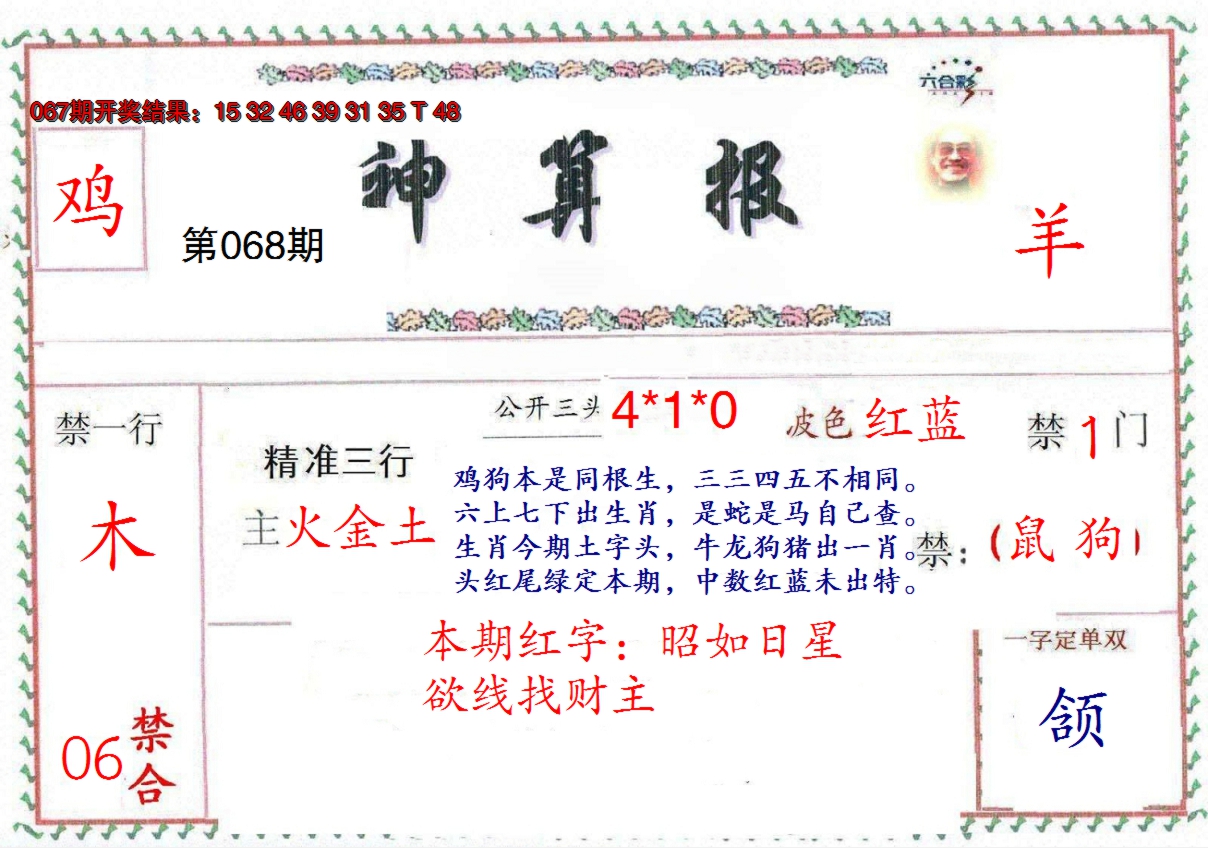 六合彩
067期开奖结果：15 32 46 39 31 35 T 48
鸡
神算报
第068期
羊
公开三头 4*1*0
波色 红蓝
禁一行
禁1门
精准三行
鸡狗本是同根生，三三四五不相同。
六上七下出生肖，是蛇是马自己查。
主火金土
木
生肖今期土字头，牛龙狗猪出一肖。
禁：（鼠 狗）
头红尾绿定本期，中数红蓝未出特。
本期红字：昭如日星
一字定单双
欲线找财主
颌
06禁合